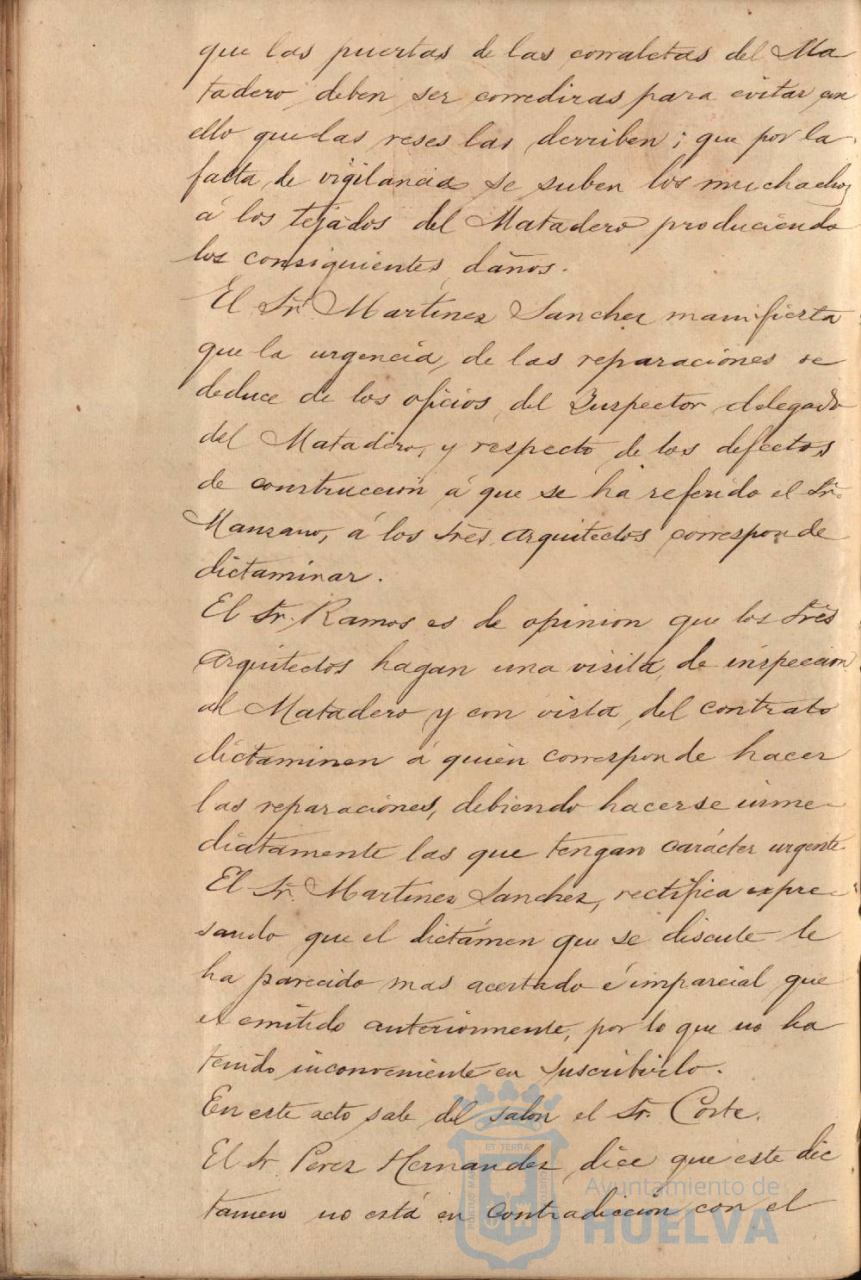 que las puertas de las corraletas del Ma
tadero, deben ser corredizas para evitar con
ello que las reses las derriben; que por la
falta de vigilancia se suben los muchachos
á los tejados del Matadero produciendo
los consiguientes daños.
El Sr. Martinez Sanchez manifiesta
que la urgencia, de las reparaciones se
deduce de los oficios del Inspector delegado
del Matadero, y respecto de los defectos
de construccion á que se ha referido el Sr.
Manzano, á los tres arquitectos corresponde
dictaminar.
El Sr. Ramos es de opinion que los tres
arquitectos hagan una visita de inspeccion
al Matadero y con vista del contrato
dictaminen á quien corresponde hacer
las reparaciones, debiendo hacerse inme-
diatamente las que tengan carácter urgente.
El Sr. Martinez Sanchez, rectifica expre-
sando que el dictámen que se discute le
ha parecido mas acertado é imparcial que
el emitido anteriormente, por lo que no ha
tenido inconveniente en suscribirlo.
En este acto sale del salon el Sr. Corte.
El Sr. Perez Hernandez, dice que este dic
tamen no está en contradiccion con el
ET TERRA
Ayuntamiento de
HUELVA